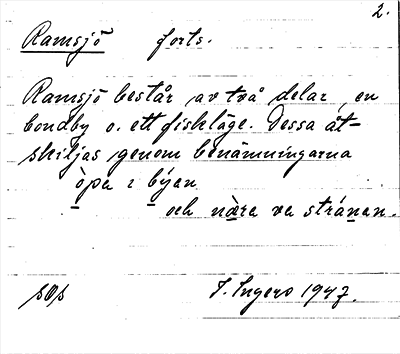 2.
Ramsjö forts.
Ramsjö består av två delar, en
bondby o. ett fiskläge. Dessa åt-
skiljas genom benämningarna
òpa i býan
och nære va stránan.
sOs I. Ingers 1947.